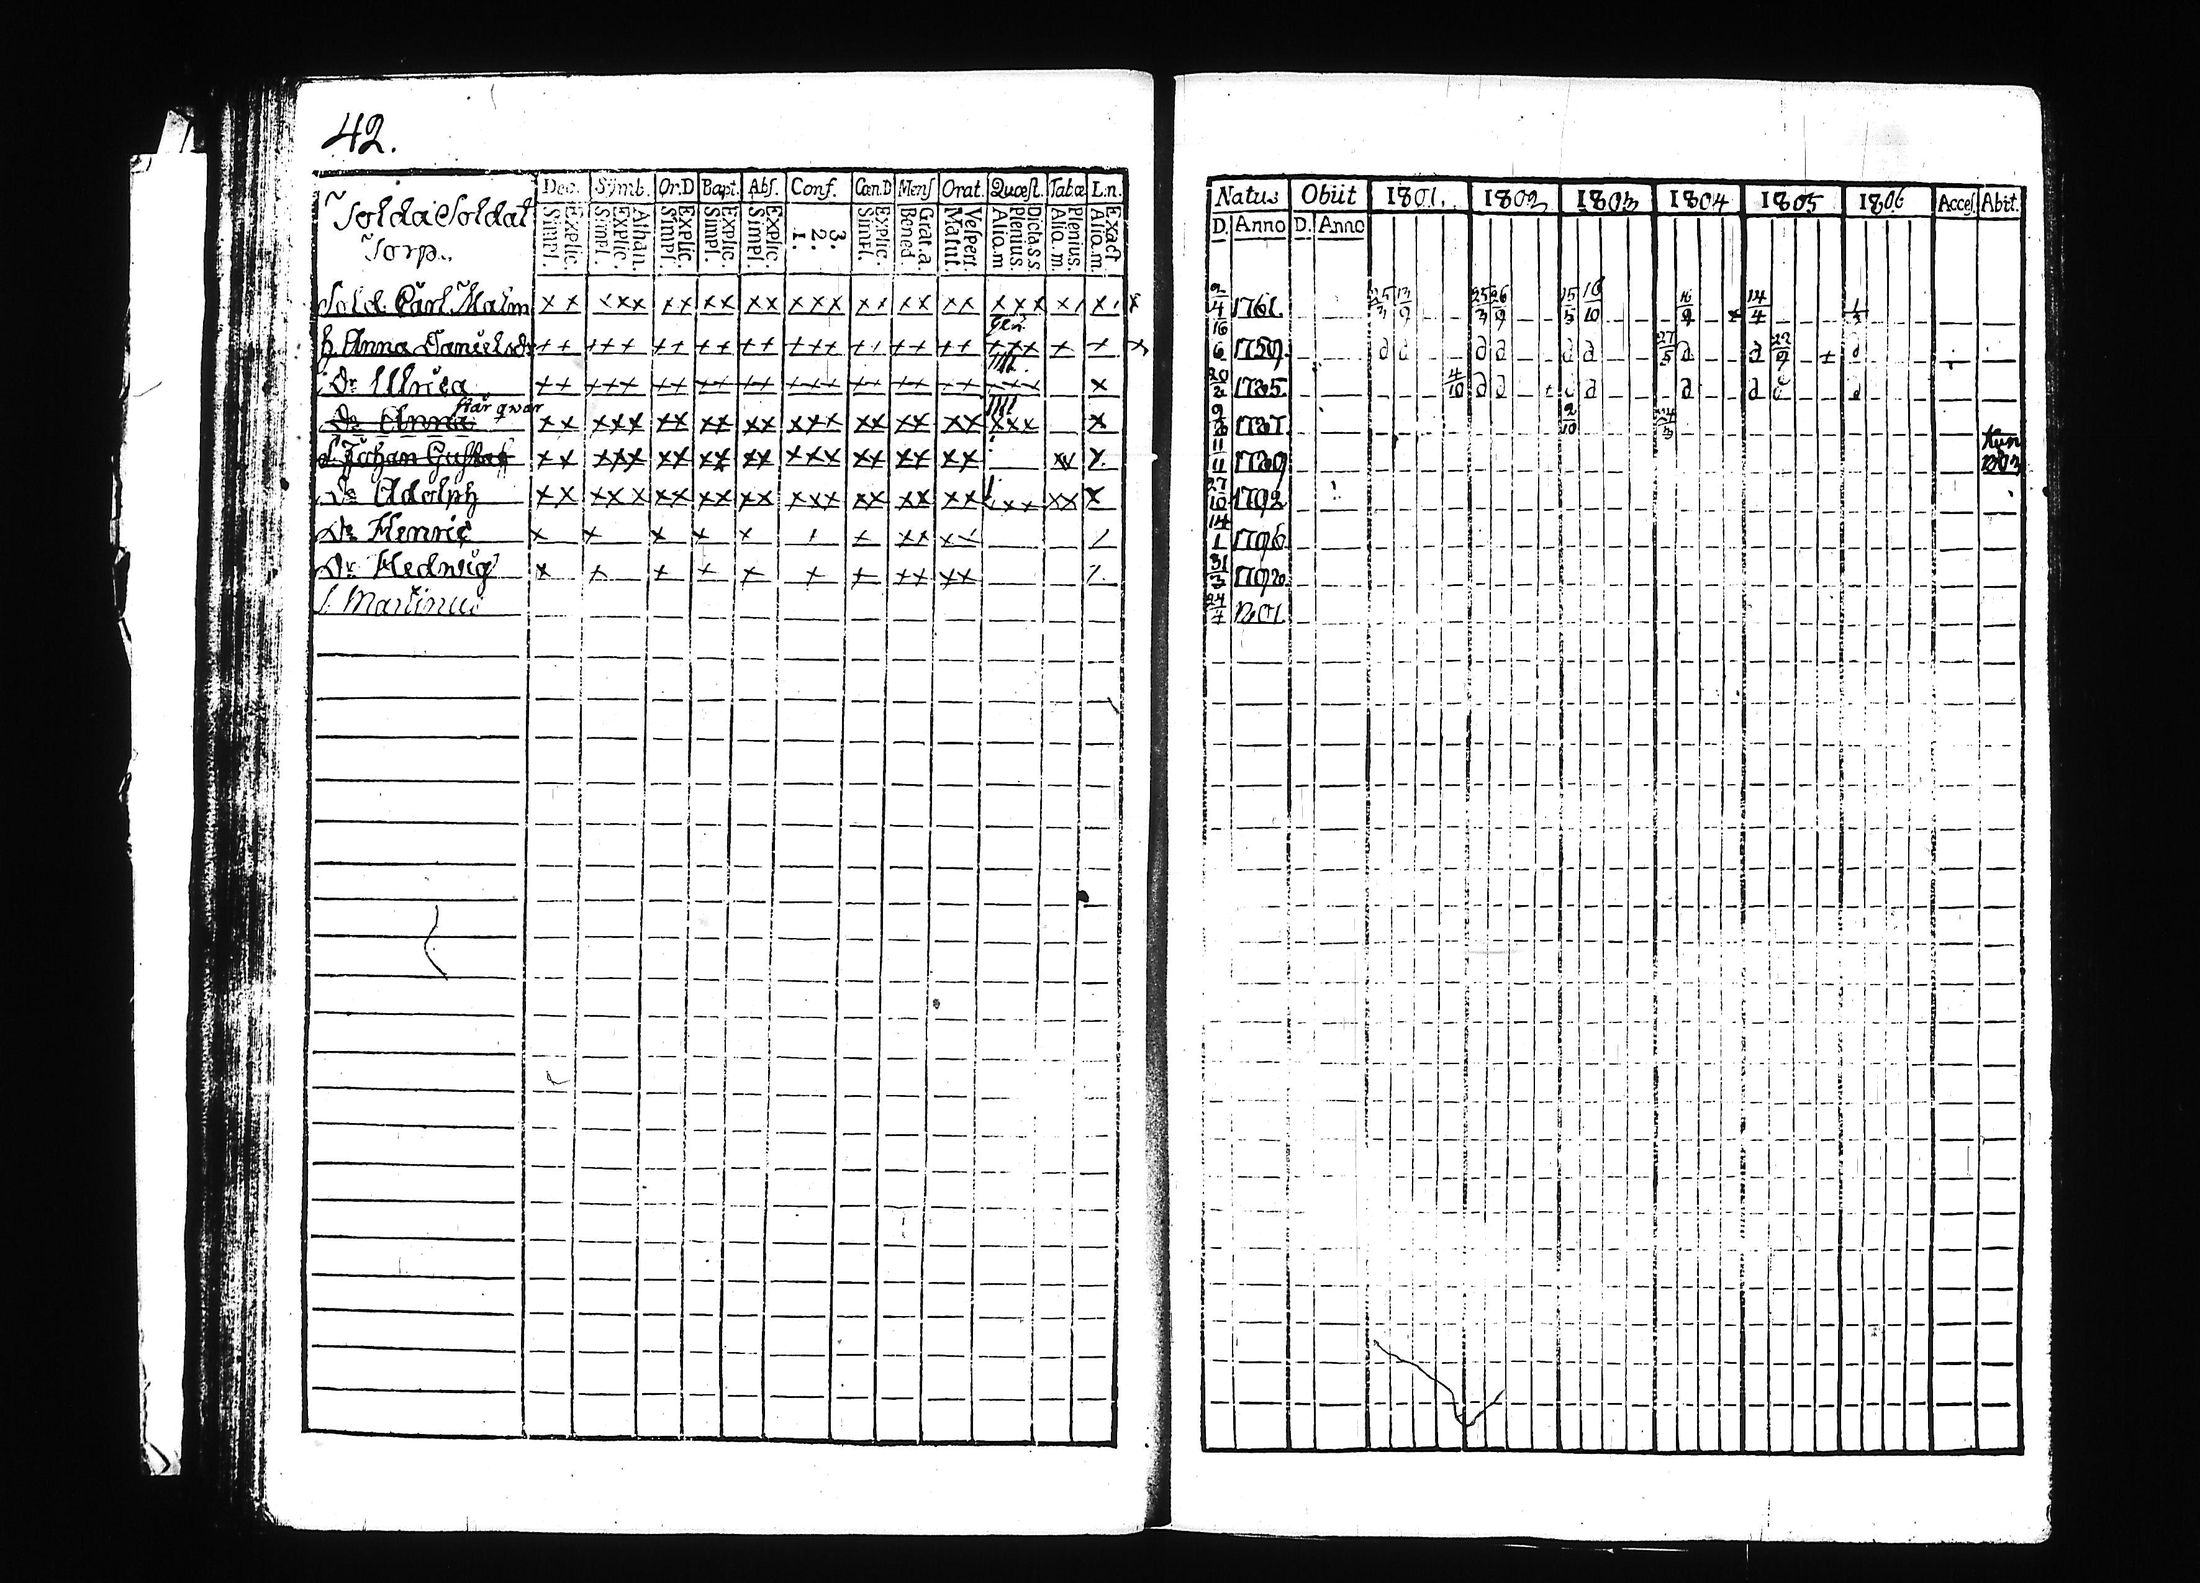 42.
Tolda Soldat
Torp.
Dec. Symb. Or.D Bapt. Abs. Conf. Cœn.D Mens Orat. Quæst. Tabæ L.n.
Explic. Simpl. Athan. Explic. Simpl. Explic. Simpl. Explic. Simpl. Explic. Simpl. 3. 2. 1. Explic. Simpl. Grat.a. Bened Vespert. Matut. Dicta.s.s Plenius Alio.m Plenius. Alio.m. Exact Alio.m.
Natus Obiit 1801. 1802 1803 1804 1805 1806 Acces. Abit.
D. Anno D. Anno
Sold. Carl Malm x x x x x x x x x x x x x x x x x x x x x x x 2/4 1761. 25/3 13/9 25/3 26/9 15/5 16/10 16/9 14/4
h. Anna Danielsdr 16/6 1759. d d d d d d 27/5 d d 22/9 d
Dr Ulrica 20/2 1785. 4/10 d d d d d d
Dr Anna står qwar 1787. 2/10 24/3
S. Johan Gustaf 11/11 1789
Dr Adolph 27/10 1792
Dr Henric 14/1 1796
Dr Hedwig 31/3
S. Martinus 24/7 1801.